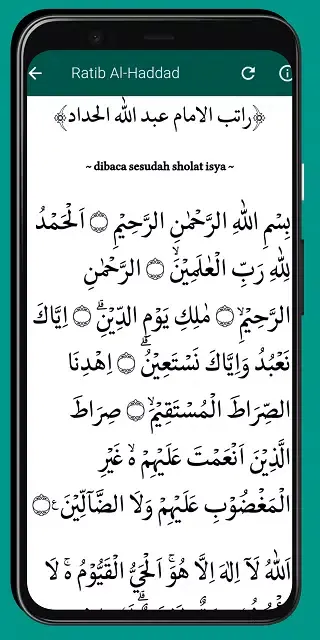 Ratib Al-Haddad
﴿راتب الامام عبد الله الحداد﴾
~ dibaca sesudah sholat isya ~
بِسْمِ اللهِ الرَّحْمٰنِ الرَّحِيْمِ ۝ اَلْحَمْدُ
لِلّٰهِ رَبِّ الْعٰلَمِيْنَۙ ۝ الرَّحْمٰنِ
الرَّحِيْمِۙ ۝ مٰلِكِ يَوْمِ الدِّيْنِۗ ۝ اِيَّاكَ
نَعْبُدُ وَاِيَّاكَ نَسْتَعِيْنُۗ ۝ اِهْدِنَا
الصِّرَاطَ الْمُسْتَقِيْمَۙ ۝ صِرَاطَ
الَّذِيْنَ اَنْعَمْتَ عَلَيْهِمْ ەۙ غَيْرِ
الْمَغْضُوْبِ عَلَيْهِمْ وَلَا الضَّاۤلِّيْنَ ࣖ ۝
اَللهُ لَآ اِلٰهَ اِلَّا هُوَۚ اَلْحَيُّ الْقَيُّوْمُ ەۚ لَا